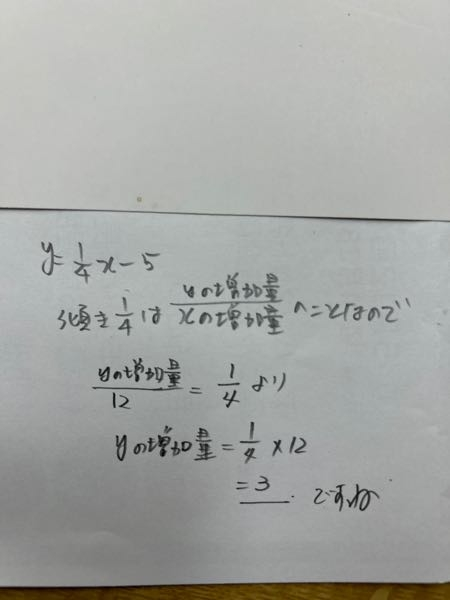 y=1/4x-5
傾き1/4は yの増加量/xの増加量 のことなので
yの増加量/12 = 1/4 より
yの増加量=1/4×12
=3 ですね